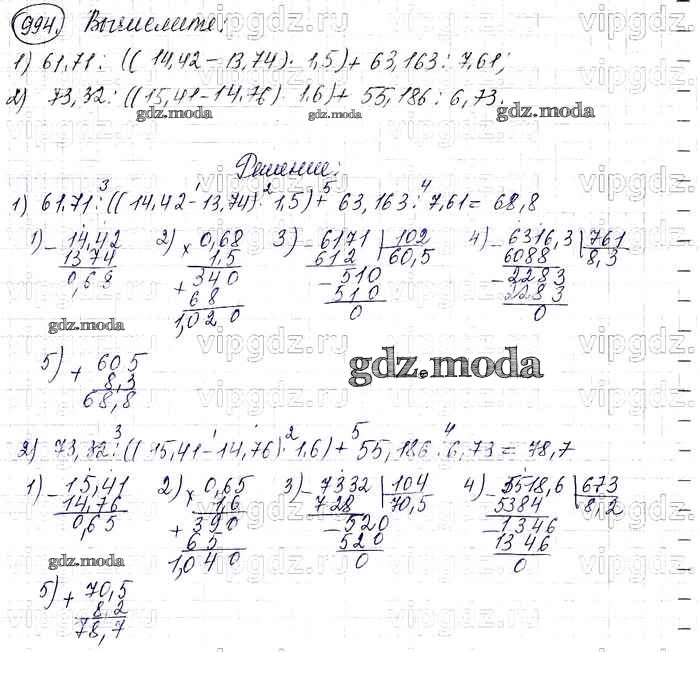 994. Вычислите:
1) 61,71 : ((14,42 - 13,74) · 1,5) + 63,163 : 7,61;
2) 73,32 : ((15,41 - 14,76) · 1,6) + 55,186 : 6,73.
gdz.moda gdz.moda gdz.moda
Решение:
3 1 2 5 4
1) 61,71 : ((14,42 - 13,74) · 1,5) + 63,163 : 7,61 = 68,8
1) - 14,42 2) × 0,68 3) - 6171 | 102 4) - 6316,3 | 761
1374 1,5 612 60,5 6088 8,3
0,68 + 340 - 510 - 2283
68 510 2283
gdz.moda 1,020 0 0
gdz.moda
5) + 605
8,3
68,8
3 1 2 5 4
2) 73,32 : ((15,41 - 14,76) · 1,6) + 55,186 : 6,73 = 78,7
1) - 15,41 2) × 0,65 3) - 7332 | 104 4) - 5518,6 | 673
14,76 1,6 728 70,5 5384 8,2
0,65 + 390 - 520 - 1346
65 520 1346
gdz.moda 1,040 0 0
gdz.moda gdz.moda
5) + 70,5
8,2
78,7
vipgdz.ru